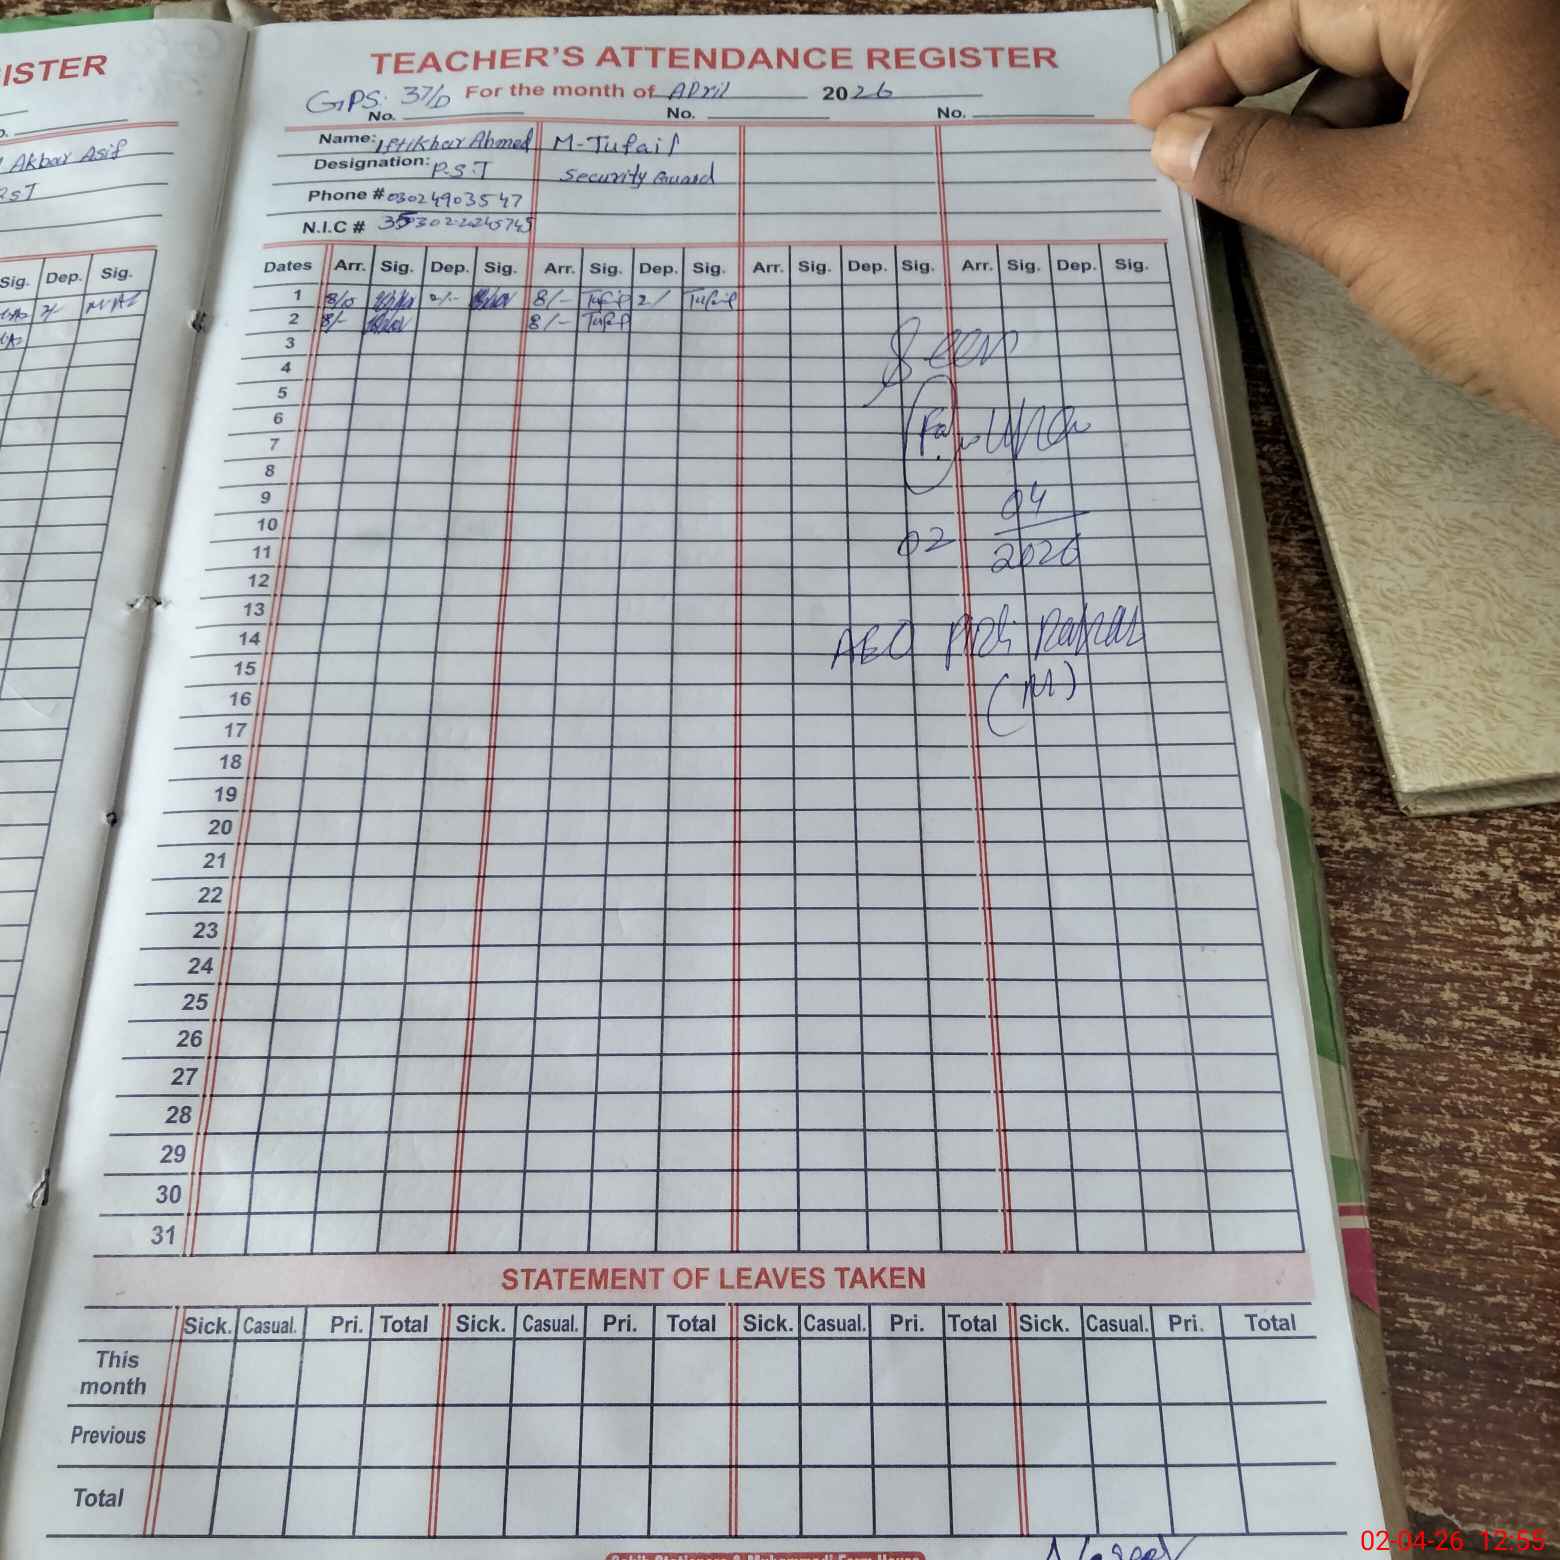 ISTER
Akbar Asif
TEACHER'S ATTENDANCE REGISTER
GPS. 37/D For the month of April 2026
No. No. No.
Name: Iftikhar Ahmed M-Tufail
Designation: P.S.T Security Guard
Phone # 03024903547
N.I.C #
Sig. Dep. Sig.
Dates Arr. Sig. Dep. Sig. Arr. Sig. Dep. Sig. Arr. Sig. Dep. Sig. Arr. Sig. Dep. Sig.
1 8/0 2/- 8/- Tufail 2/ Tufail
2 8/- 8/- Tufail
3
4
5
6
7
8
9
10
11
12
13
14
15
16
17
18
19
20
21
22
23
24
25
26
27
28
29
30
31
Seen
02 04
2026
AEO
(M)
STATEMENT OF LEAVES TAKEN
Sick. Casual. Pri. Total Sick. Casual. Pri. Total Sick. Casual. Pri. Total Sick. Casual. Pri. Total
This month
Previous
Total
02-04-26 12:55